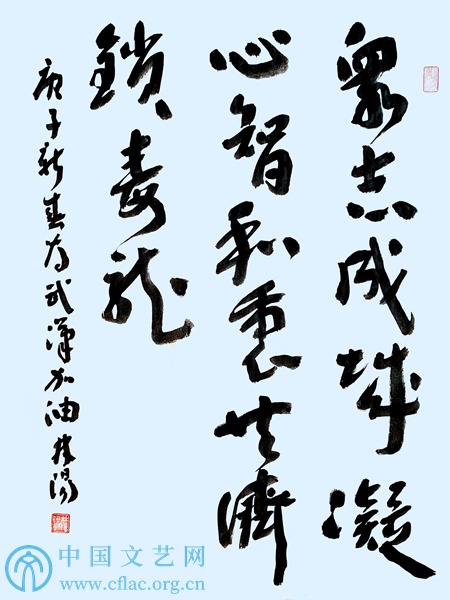 眾志成城凝
心智和衷共濟
鎖毒龍
庚子新春为武漢加油
中国文艺网
www.cflac.org.cn